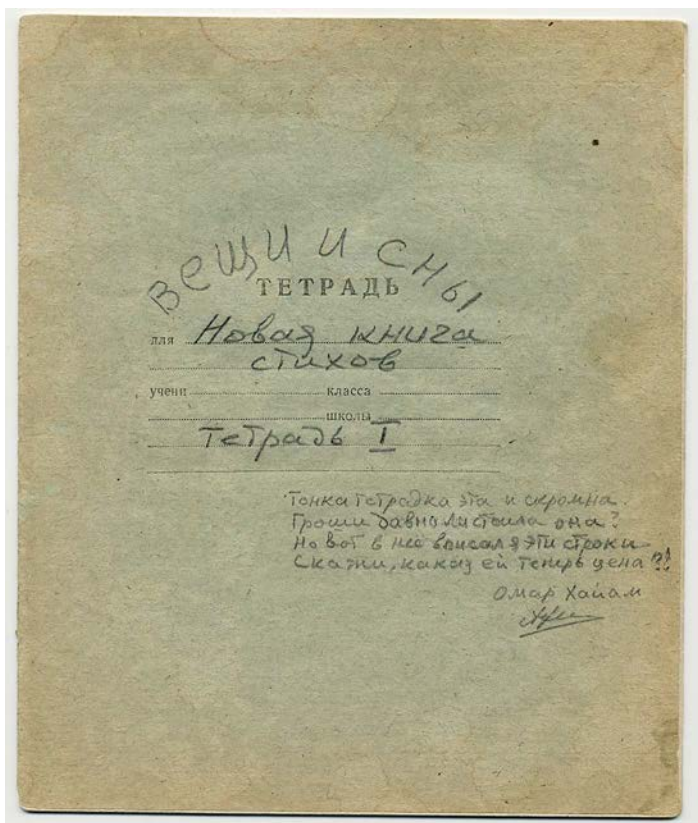 вещи и сны
ТЕТРАДЬ
для Новая книга
стихов
учени класса
школы
Тетрадь I
Тонка тетрадка эта и скромна.
Гроши давно ли стоила она?
Но вот в нее вписал я эти строки
Скажи, какая ей теперь цена?!
Омар Хайам